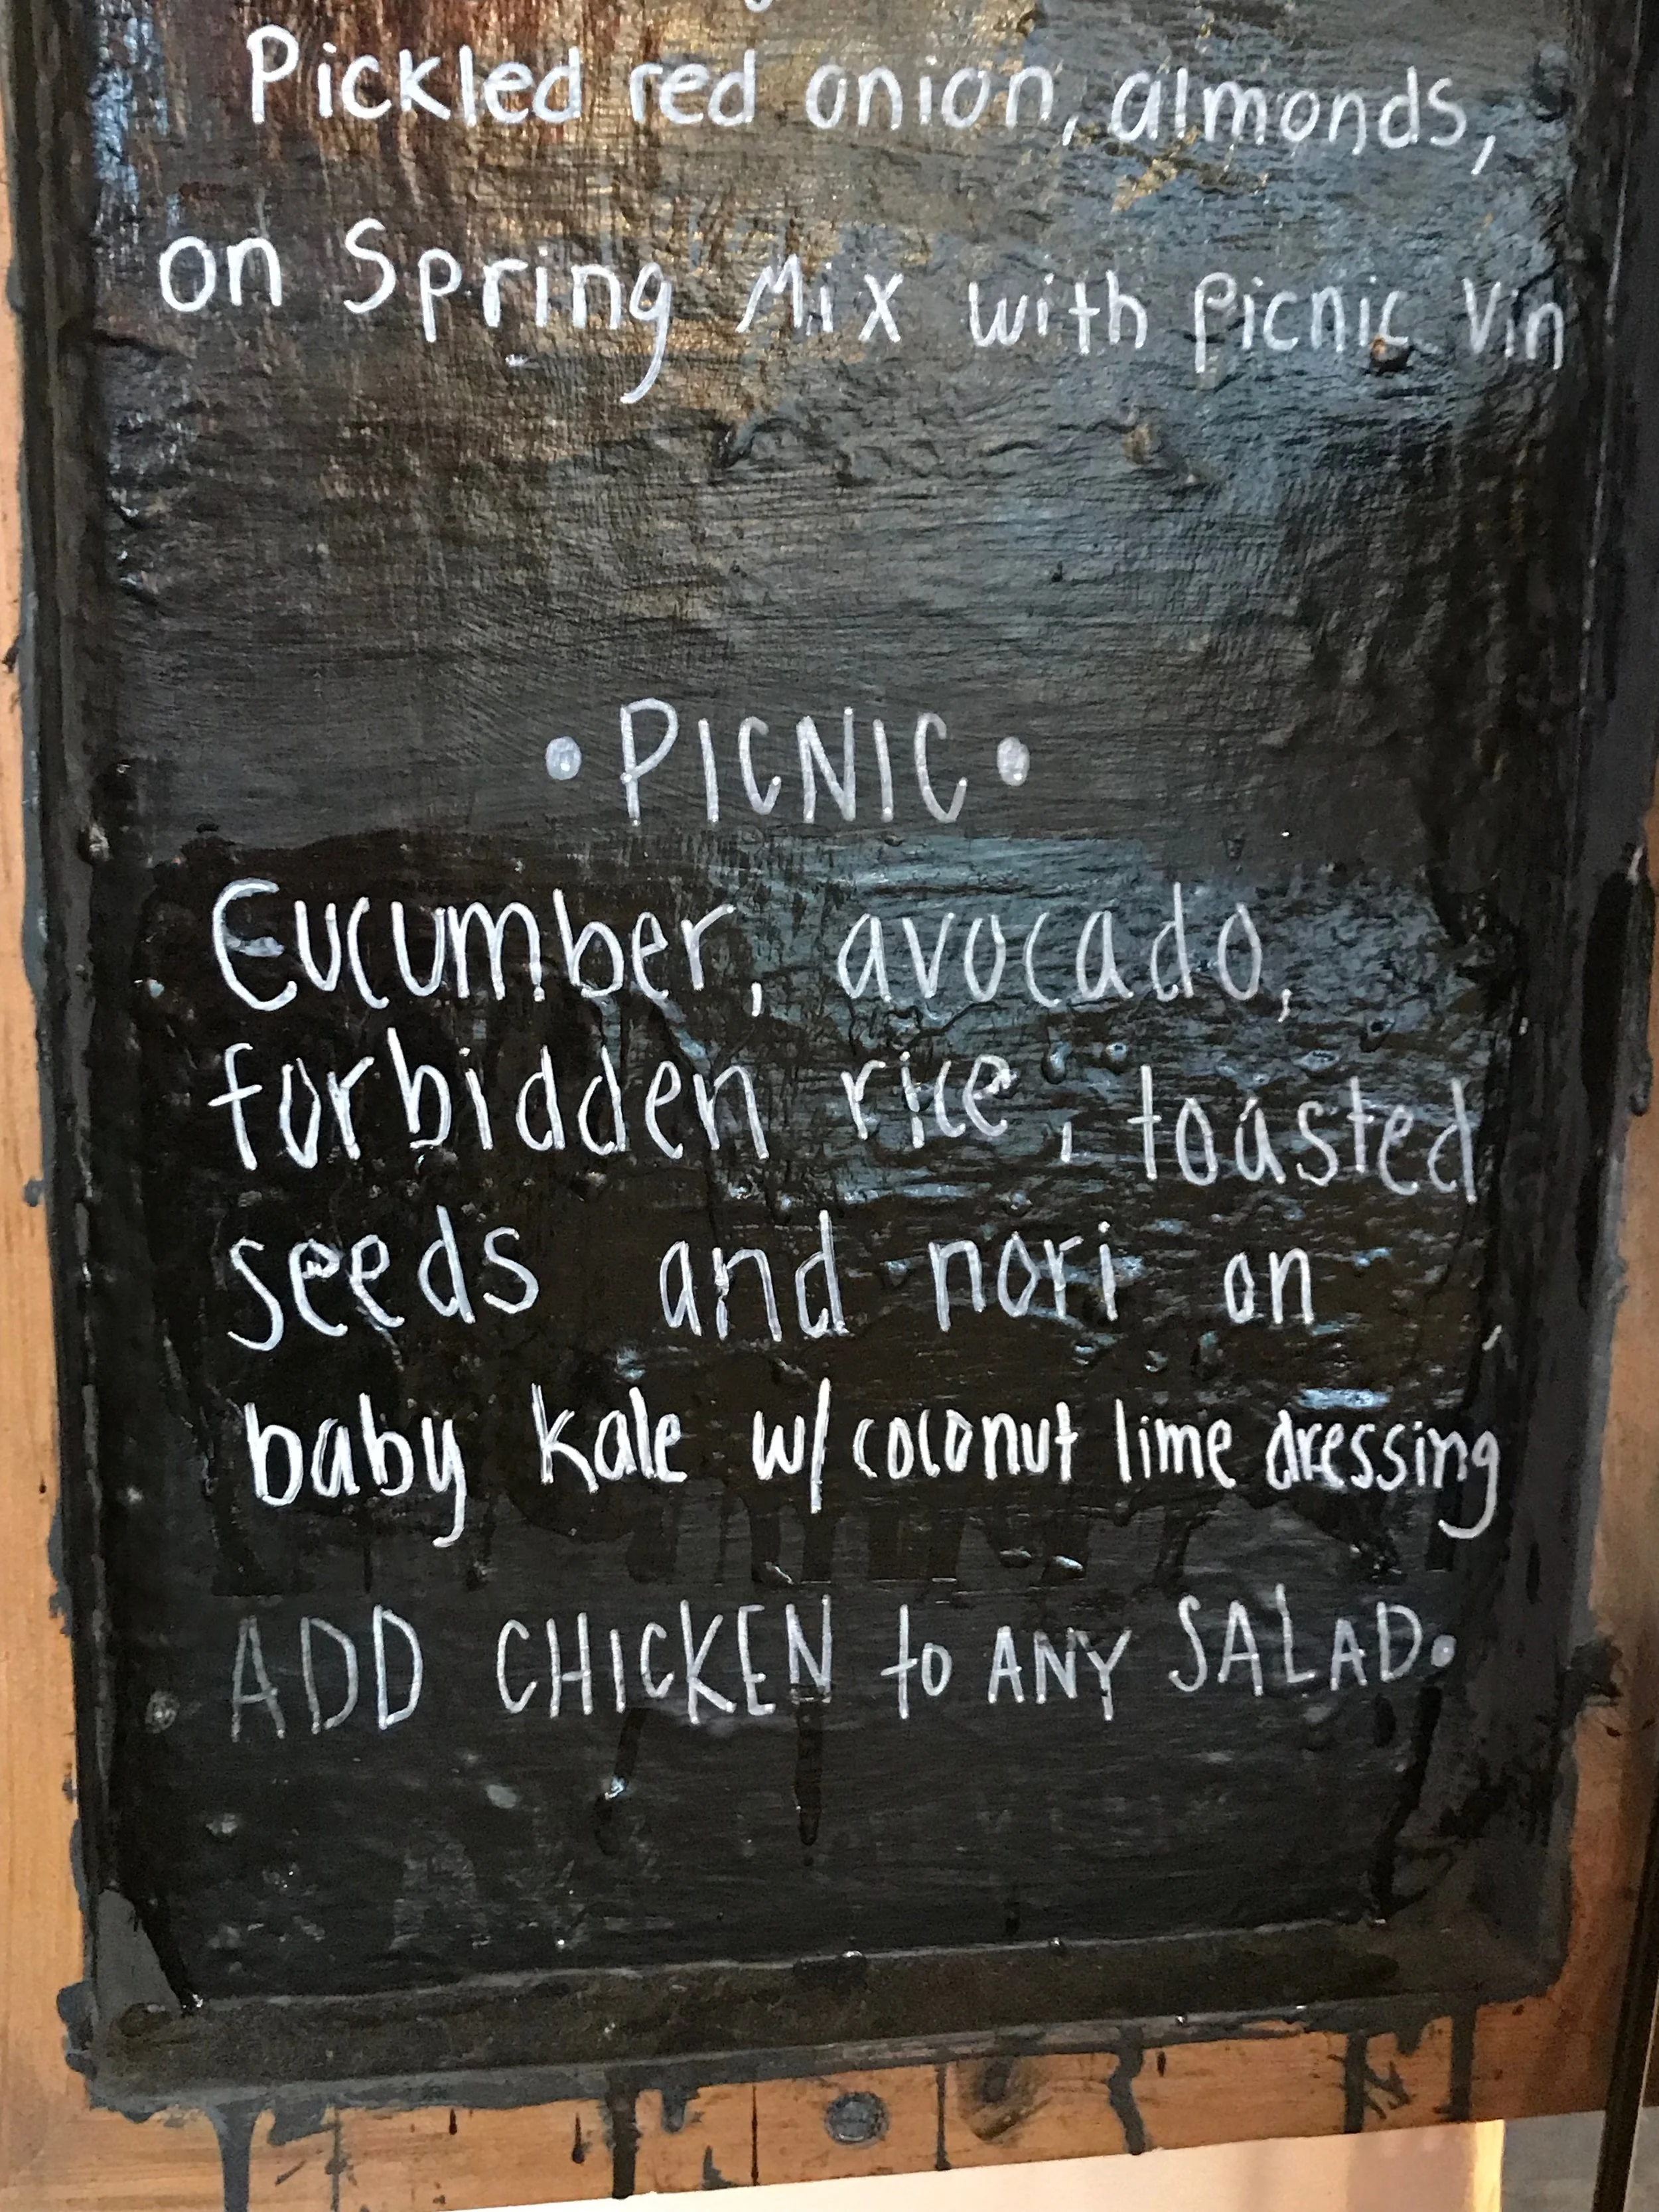 Pickled red onion, almonds,
on Spring Mix with picnic Vin
• PICNIC •
Cucumber, avocado,
forbidden rice, toasted
seeds and nori on
baby kale w/ coconut lime dressing
ADD CHICKEN to ANY SALAD.